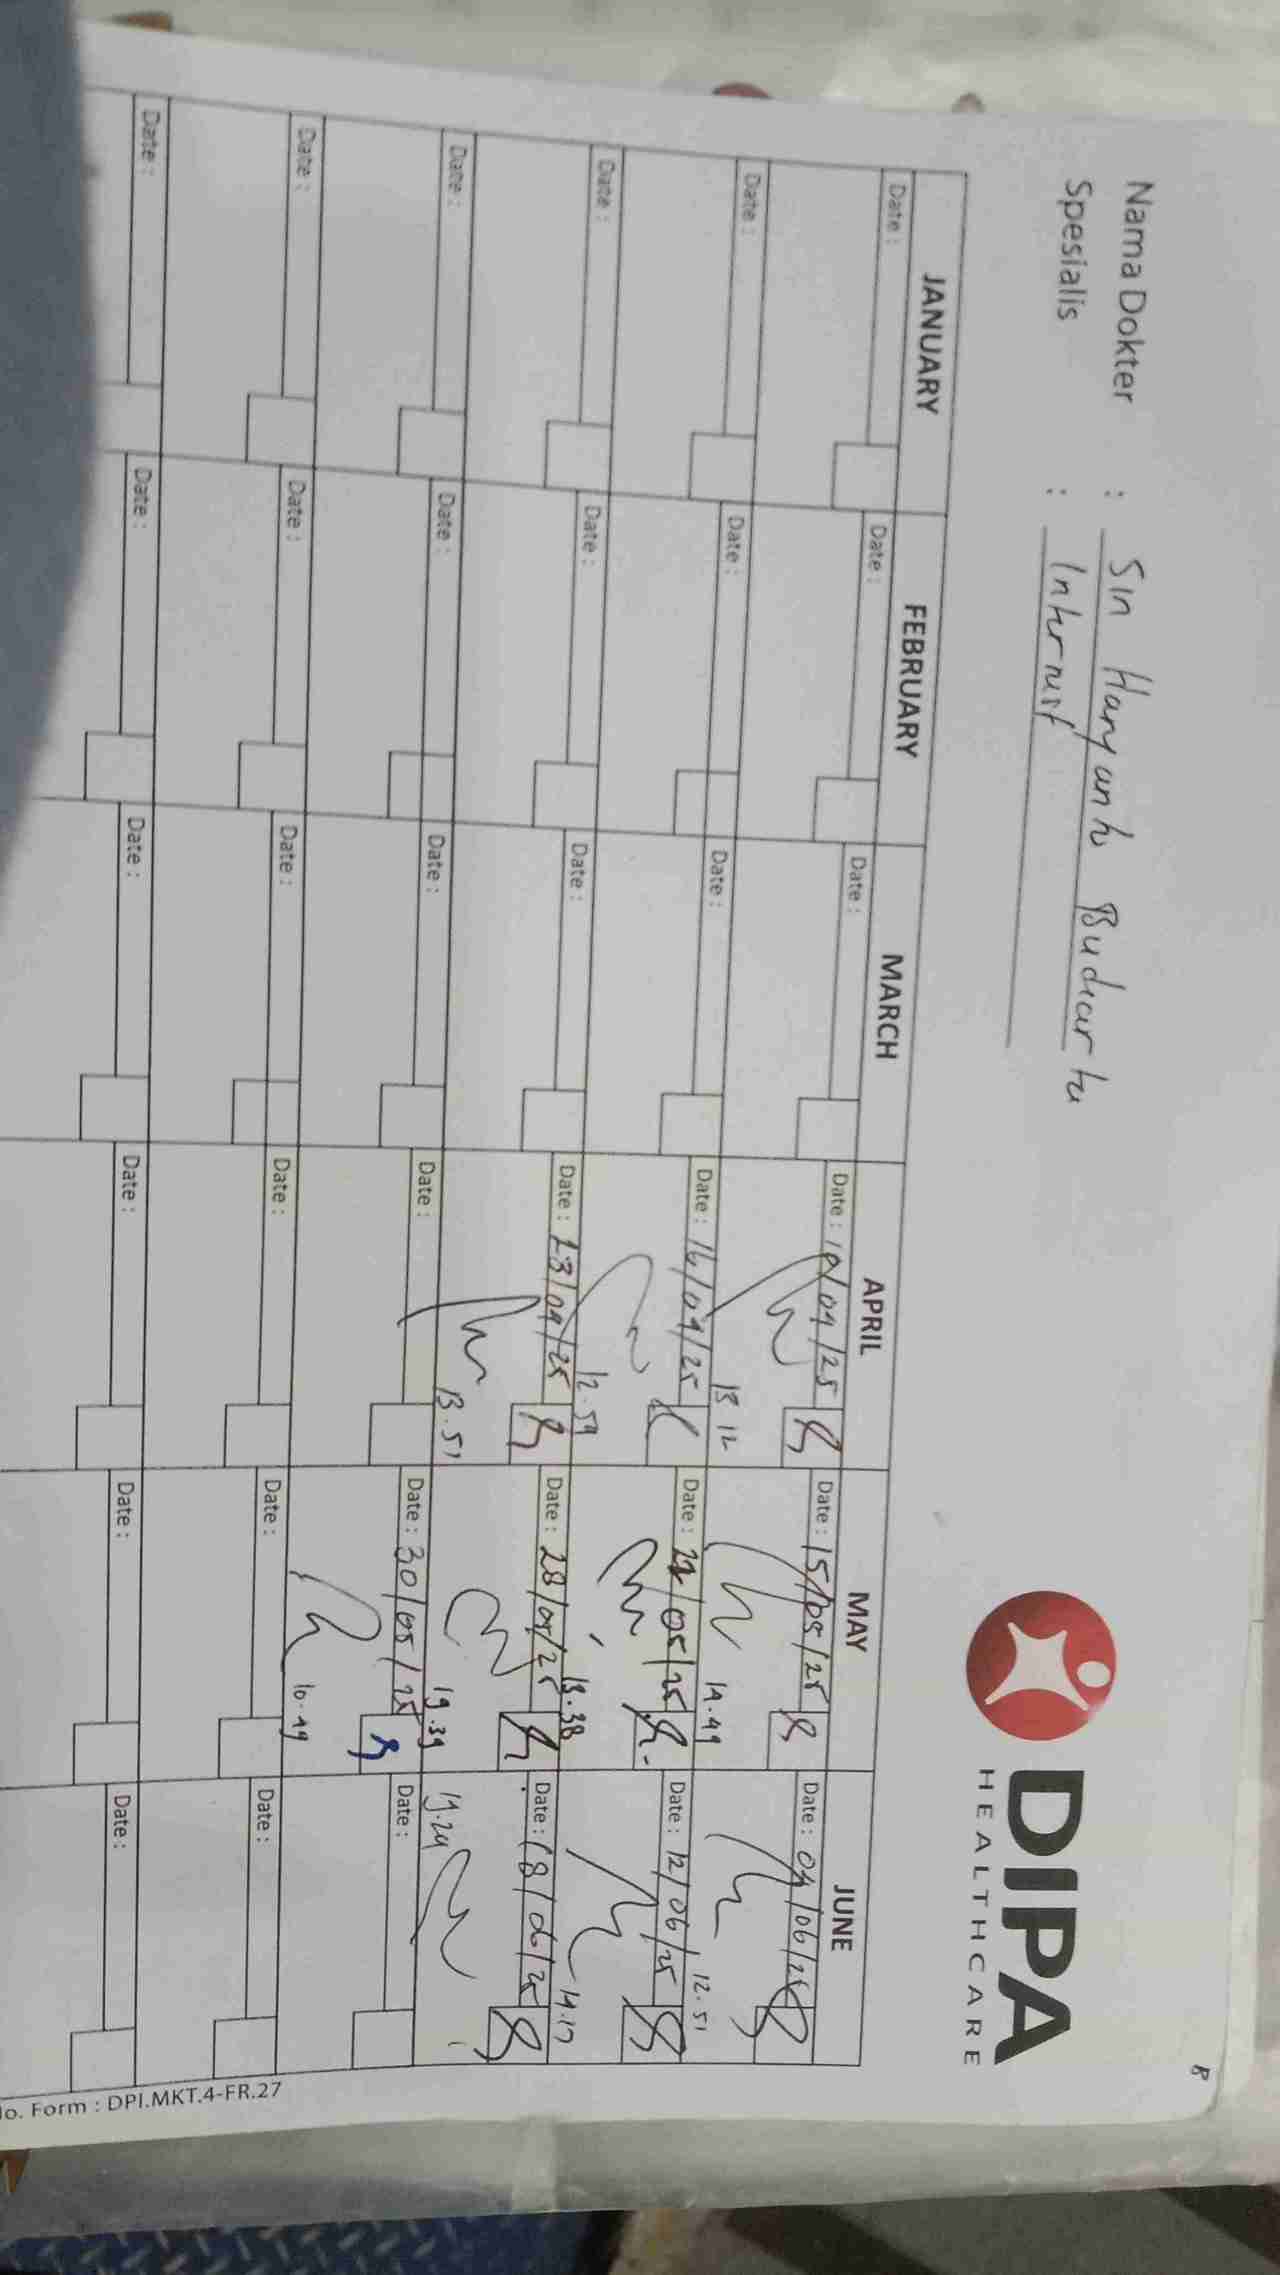 DIPA
HEALTHCARE
Nama Dokter :
Spesialis : Internist
JANUARY FEBRUARY MARCH APRIL MAY JUNE
Date : Date : Date : Date : 10/04/25 Date : 15/05/25 Date : 04/06/25
13.12 14.49 12.51
Date : Date : Date : Date : 16/04/25 Date : 22/05/25 Date : 12/06/25
12.59 13.38 14.17
Date : Date : Date : Date : 23/04/25 Date : 28/05/25 Date : 18/06/25
13.51 19.39 19.24
Date : Date : Date : Date : Date : 30/05/25 Date :
10.49
Date : Date : Date : Date : Date : Date :
Date : Date : Date : Date : Date : Date :
No. Form : DPI.MKT.4-FR.27